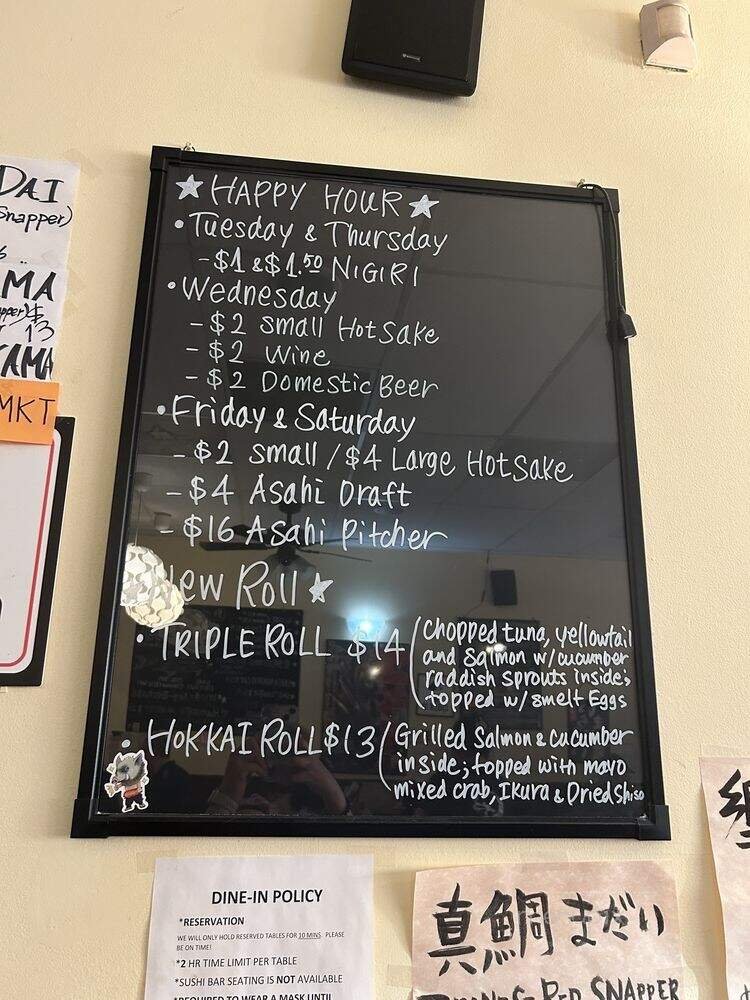 DAI
Snapper)
MA
13
KAMA
MKT
★ HAPPY HOUR ★
• Tuesday & Thursday
- $1 & $1.50 NIGIRI
• Wednesday
- $2 small Hot Sake
- $2 Wine
- $2 Domestic Beer
• Friday & Saturday
- $2 small / $4 Large Hot Sake
- $4 Asahi Draft
- $16 Asahi Pitcher
New Roll ★
• TRIPLE ROLL $14 (Chopped tuna, yellowtail
and Salmon w/ cucumber
raddish sprouts inside;
topped w/ smelt Eggs
• HOKKAI ROLL $13 (Grilled Salmon & cucumber
inside; topped with mayo
mixed crab, Ikura & Dried shiso
DINE-IN POLICY
*RESERVATION
WE WILL ONLY HOLD RESERVED TABLES FOR 10 MINS. PLEASE
BE ON TIME!
*2 HR TIME LIMIT PER TABLE
*SUSHI BAR SEATING IS NOT AVAILABLE
*REQUIRED TO WEAR A MASK UNTIL
真鯛 まだい
RED SNAPPER